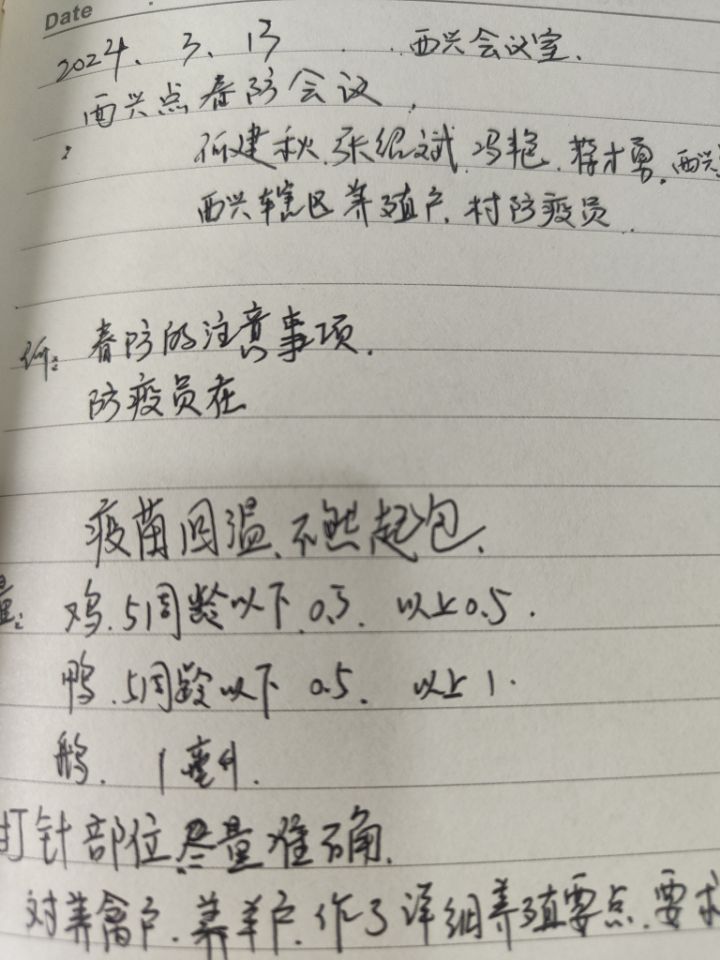 Date
2024. 3. 13 西兴会议室.
西兴点春防会议,
建秋.张绍斌.冯艳.蒋才勇.西兴
西兴辖区养殖户.村防疫员.
春防的注意事项.
防疫员在
疫苗回温.不然起包.
量: 鸡.5周龄以下.0.3. 以上0.5.
鸭.5周龄以下 0.5. 以上1.
鹅. 1毫升.
打针部位尽量准确.
对养禽户.养羊户.作了详细养殖要点.要求